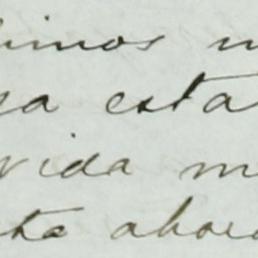 imos m
ya esta
vida m
ta ahor